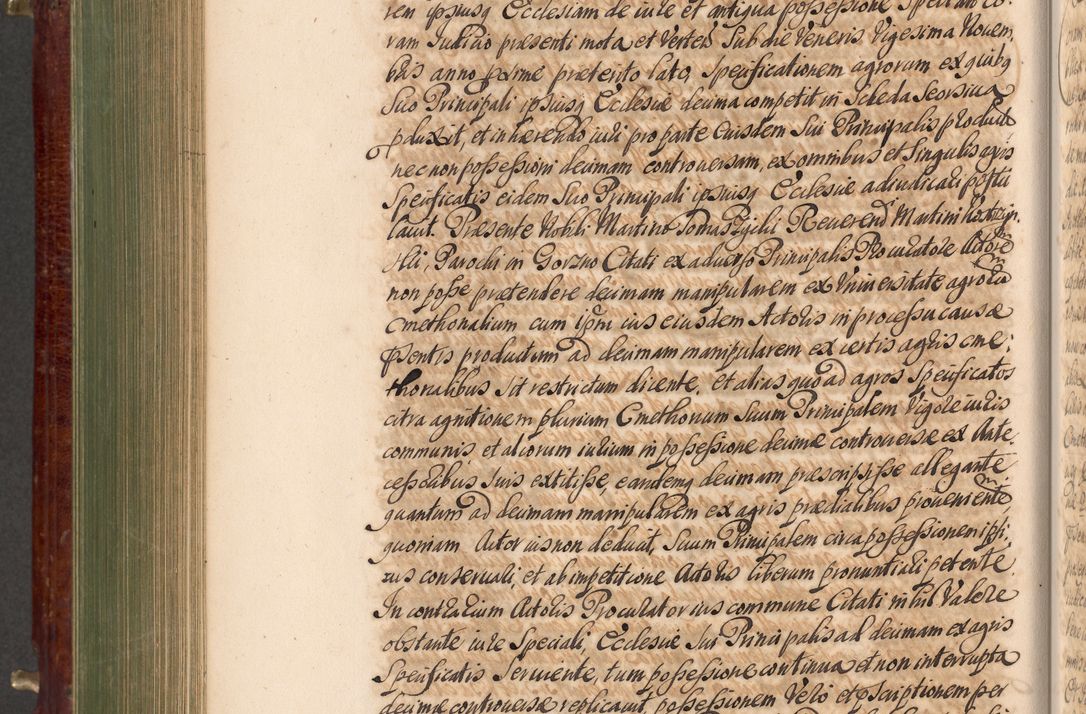 rem ipsiusq Ecclesiam de iure et antiqua possessione Spectan co:
ram Iudicio præsenti mota et Verten Sub die Veneris Vigesima Novem
bris anno proxime præterito lato, Specificationem agrorum ex quibq
Suo Principali ipsiusq Ecclesiæ decima competit in Scheda Seorsiva
pduxit, et inhærendo iuri pro parte Eiusdem Sui Principalis producto
nec non possessioni decimam controversam, ex omnibus et Singulis agris
Specificatis eidem Suo Principali ipsiusq Ecclesiæ adiudicari postu
lavit. Præsente Nobli Martino Reverend Martini
Parochi in Gorzno Citati ex adverso Principalis Procuratore Actorē
non posse prætendere decimam manipularem ex Universitate agrorū
Cmethonalium cum ipm ius eiusdem Actoris in processu causæ
psentis productum ad decimam manipularem ex certis agris cme:
thonalibus Sit restrictum dicente, et alias quo ad agros Specificatos
citra agnitionem plurium Cmethonum Suum Principalem Vigore iuris
communis, et aliorum iurium in possessione decimæ controversæ ex Ante
cessoribus Suis extitisse, eandemq decimam præscripsisse allegante
quantum ad decimam manipularem ex agris prædialibus proveniente
quoniam Actor ius non deducit, Suum Principalem circa possessionem ipsi,
us conservari, et ab impetitione Actoris liberum pronuntiari petente.
In contrarium Actoris Procurator ius commune Citati nihil Valere
obstante iure Speciali, Ecclesiæ Sui Principalis ad decimam ex agris
Specificatis Serviente, tum possessione continua et non interrupta
decimæ controversæ replicavit, possessionem Vero et pscriptionem per